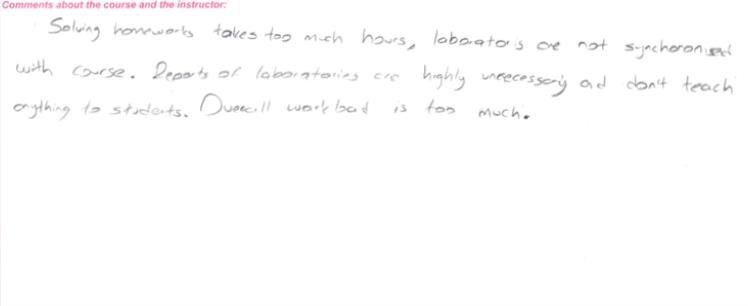 Comments about the course and the instructor:
Solving homeworks takes too much hours, laboratoris are not synchoronised
with course. Reports of laboratories are highly uneecessary ad don't teach
anything to students. Overall workload is too much.